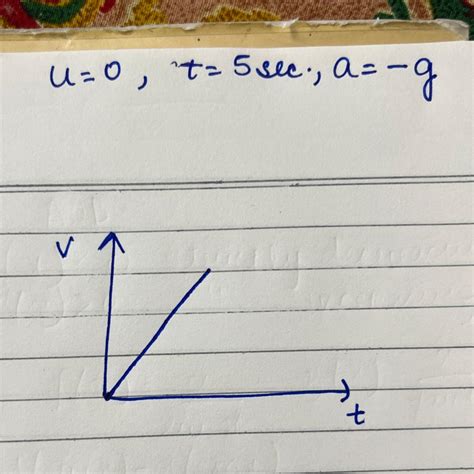 u=0, t=5sec., a=-g
v
t